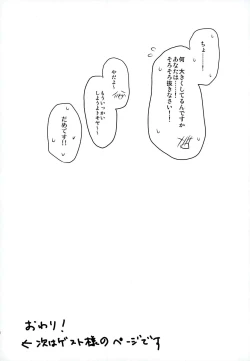 ちょ———
何、大きくしてるんですか
あなたは……!
そろそろ抜きなさい!!
やだよ〜
もういっかい
しようよトキヤ〜
だめです!!
おわり!
←次はゲスト様のページです